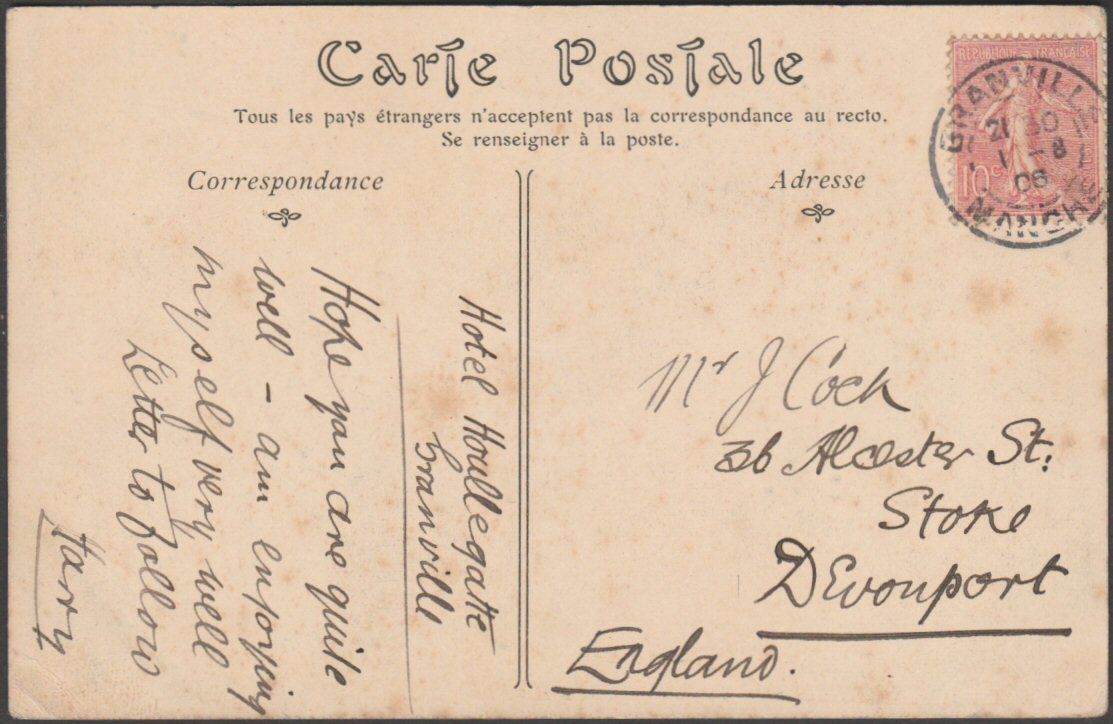 Carte Postale
Tous les pays étrangers n'acceptent pas la correspondance au recto.
Se renseigner à la poste.
Correspondance
Adresse
RÉPUBLIQUE FRANÇAISE
10c
GRANVILLE
21 30
1 - 8
06
MANCHE
Hotel Houllegatte
Granville
Hope you are quite
well - am enjoying
myself very well
Letter to follow
Harry
Mr J Cock
36 Alcester St:
Stoke
Devonport
England.